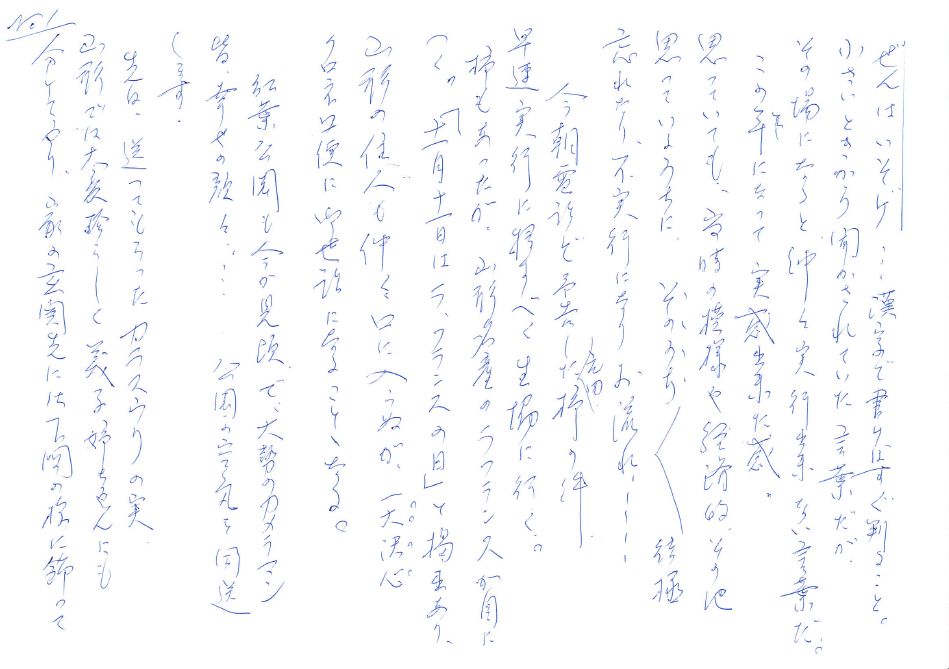 ぜんはいそげ…漢字で書けばすぐ判ること。
小さいときから聞かされていた言葉だが
その場になると仲々実行出来ない言葉だ。
この年になって実感出来た感。
思っていても、当時の模様や経済的、その他
思っているうちに、そのうち〳〵結極
忘れたり、不実行になりお流れ―――
今朝電話で予告した庄内柿の件
早速実行に移すべく生協に行く。
柿もあったが、山形名産のラフランスが目に
つく。「十一月十一日はラ、フランスの日」と掲示あり、
山形の住人も仲々口に入らぬが、一大決心
クロネコ便に御世話になることゝなる。
紅葉公園も今が見頃で、大勢のカメラマン
皆、幸せの顔々…。公園の空気を同送
します。
先日、送ってもらったカラスウリの実
山形では大変珍らしく義子姉ちゃんにも
分けてやり、我の玄関先には下関の様に飾って
No.1